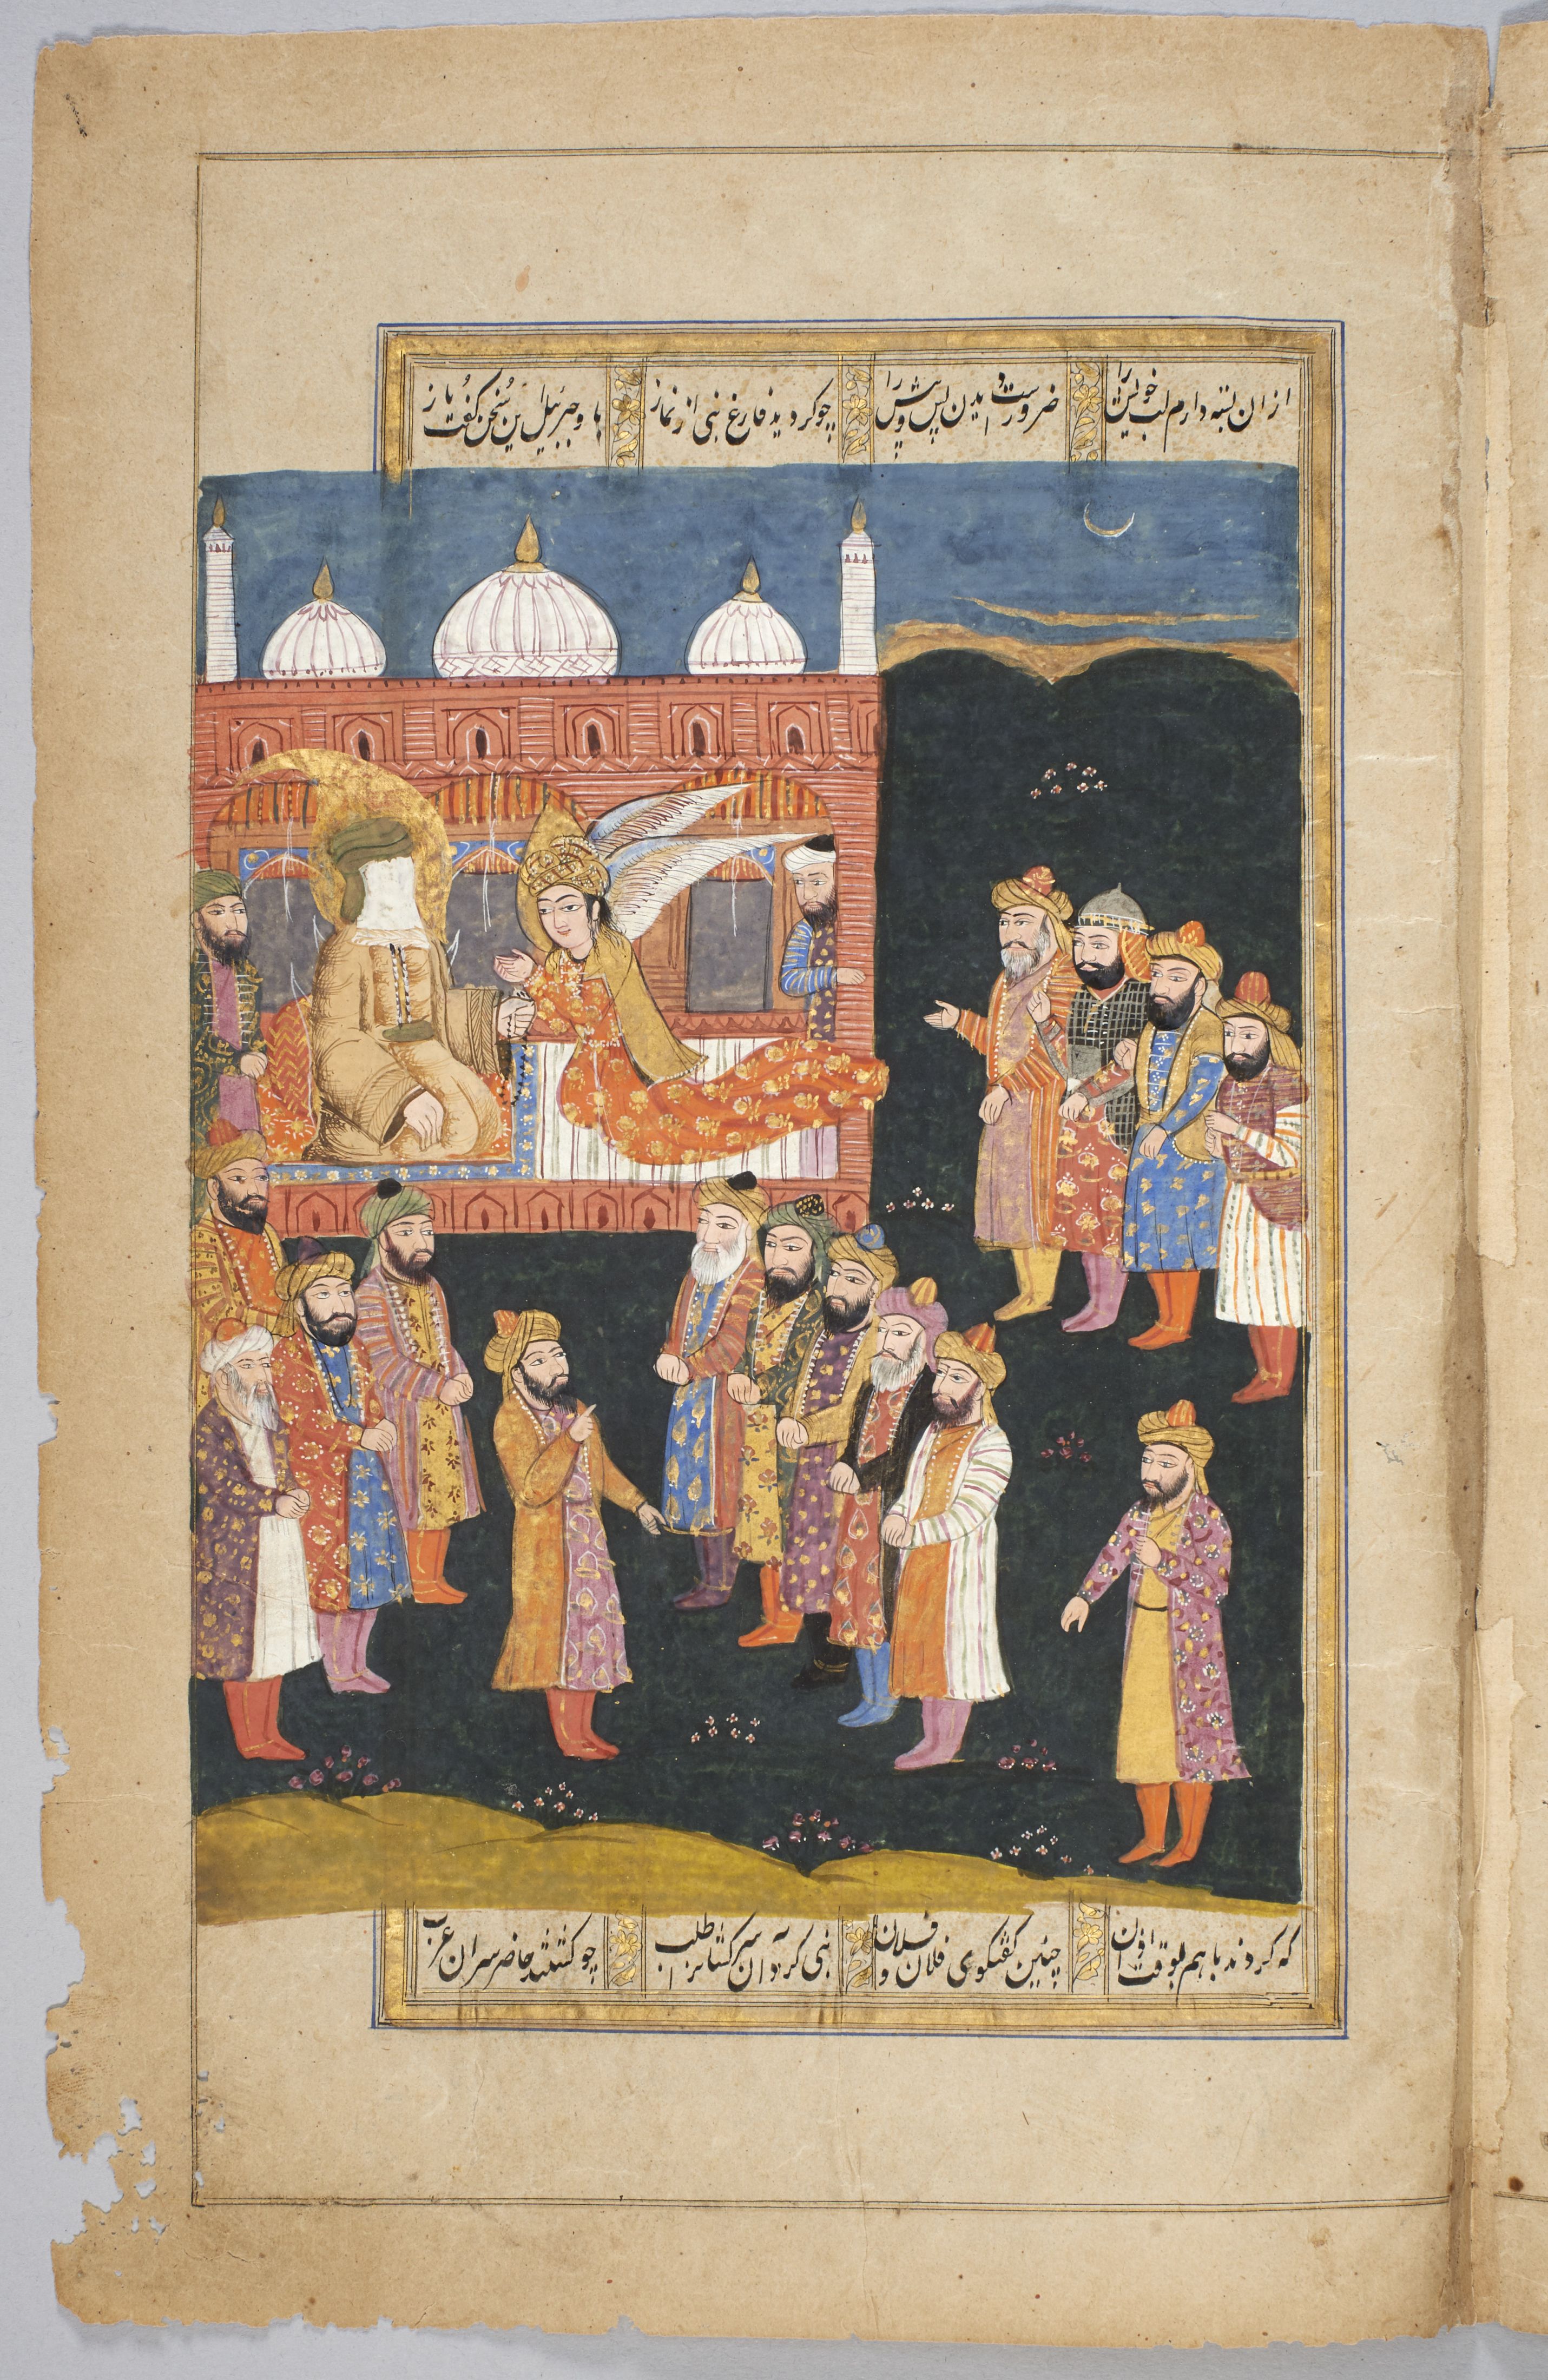 ازان بسته دارم لب خویش را
ضرورست دیدن پس و پیش را
چو گردید فارغ نبی از نماز
باو جبرئیل این سخن گفت باز
که کردند باهم بوقت اذان
چنین گفتگوی فلان و فلان
نبی کرد آن سرکشانرا طلب
چو گشتند حاضر سران عرب